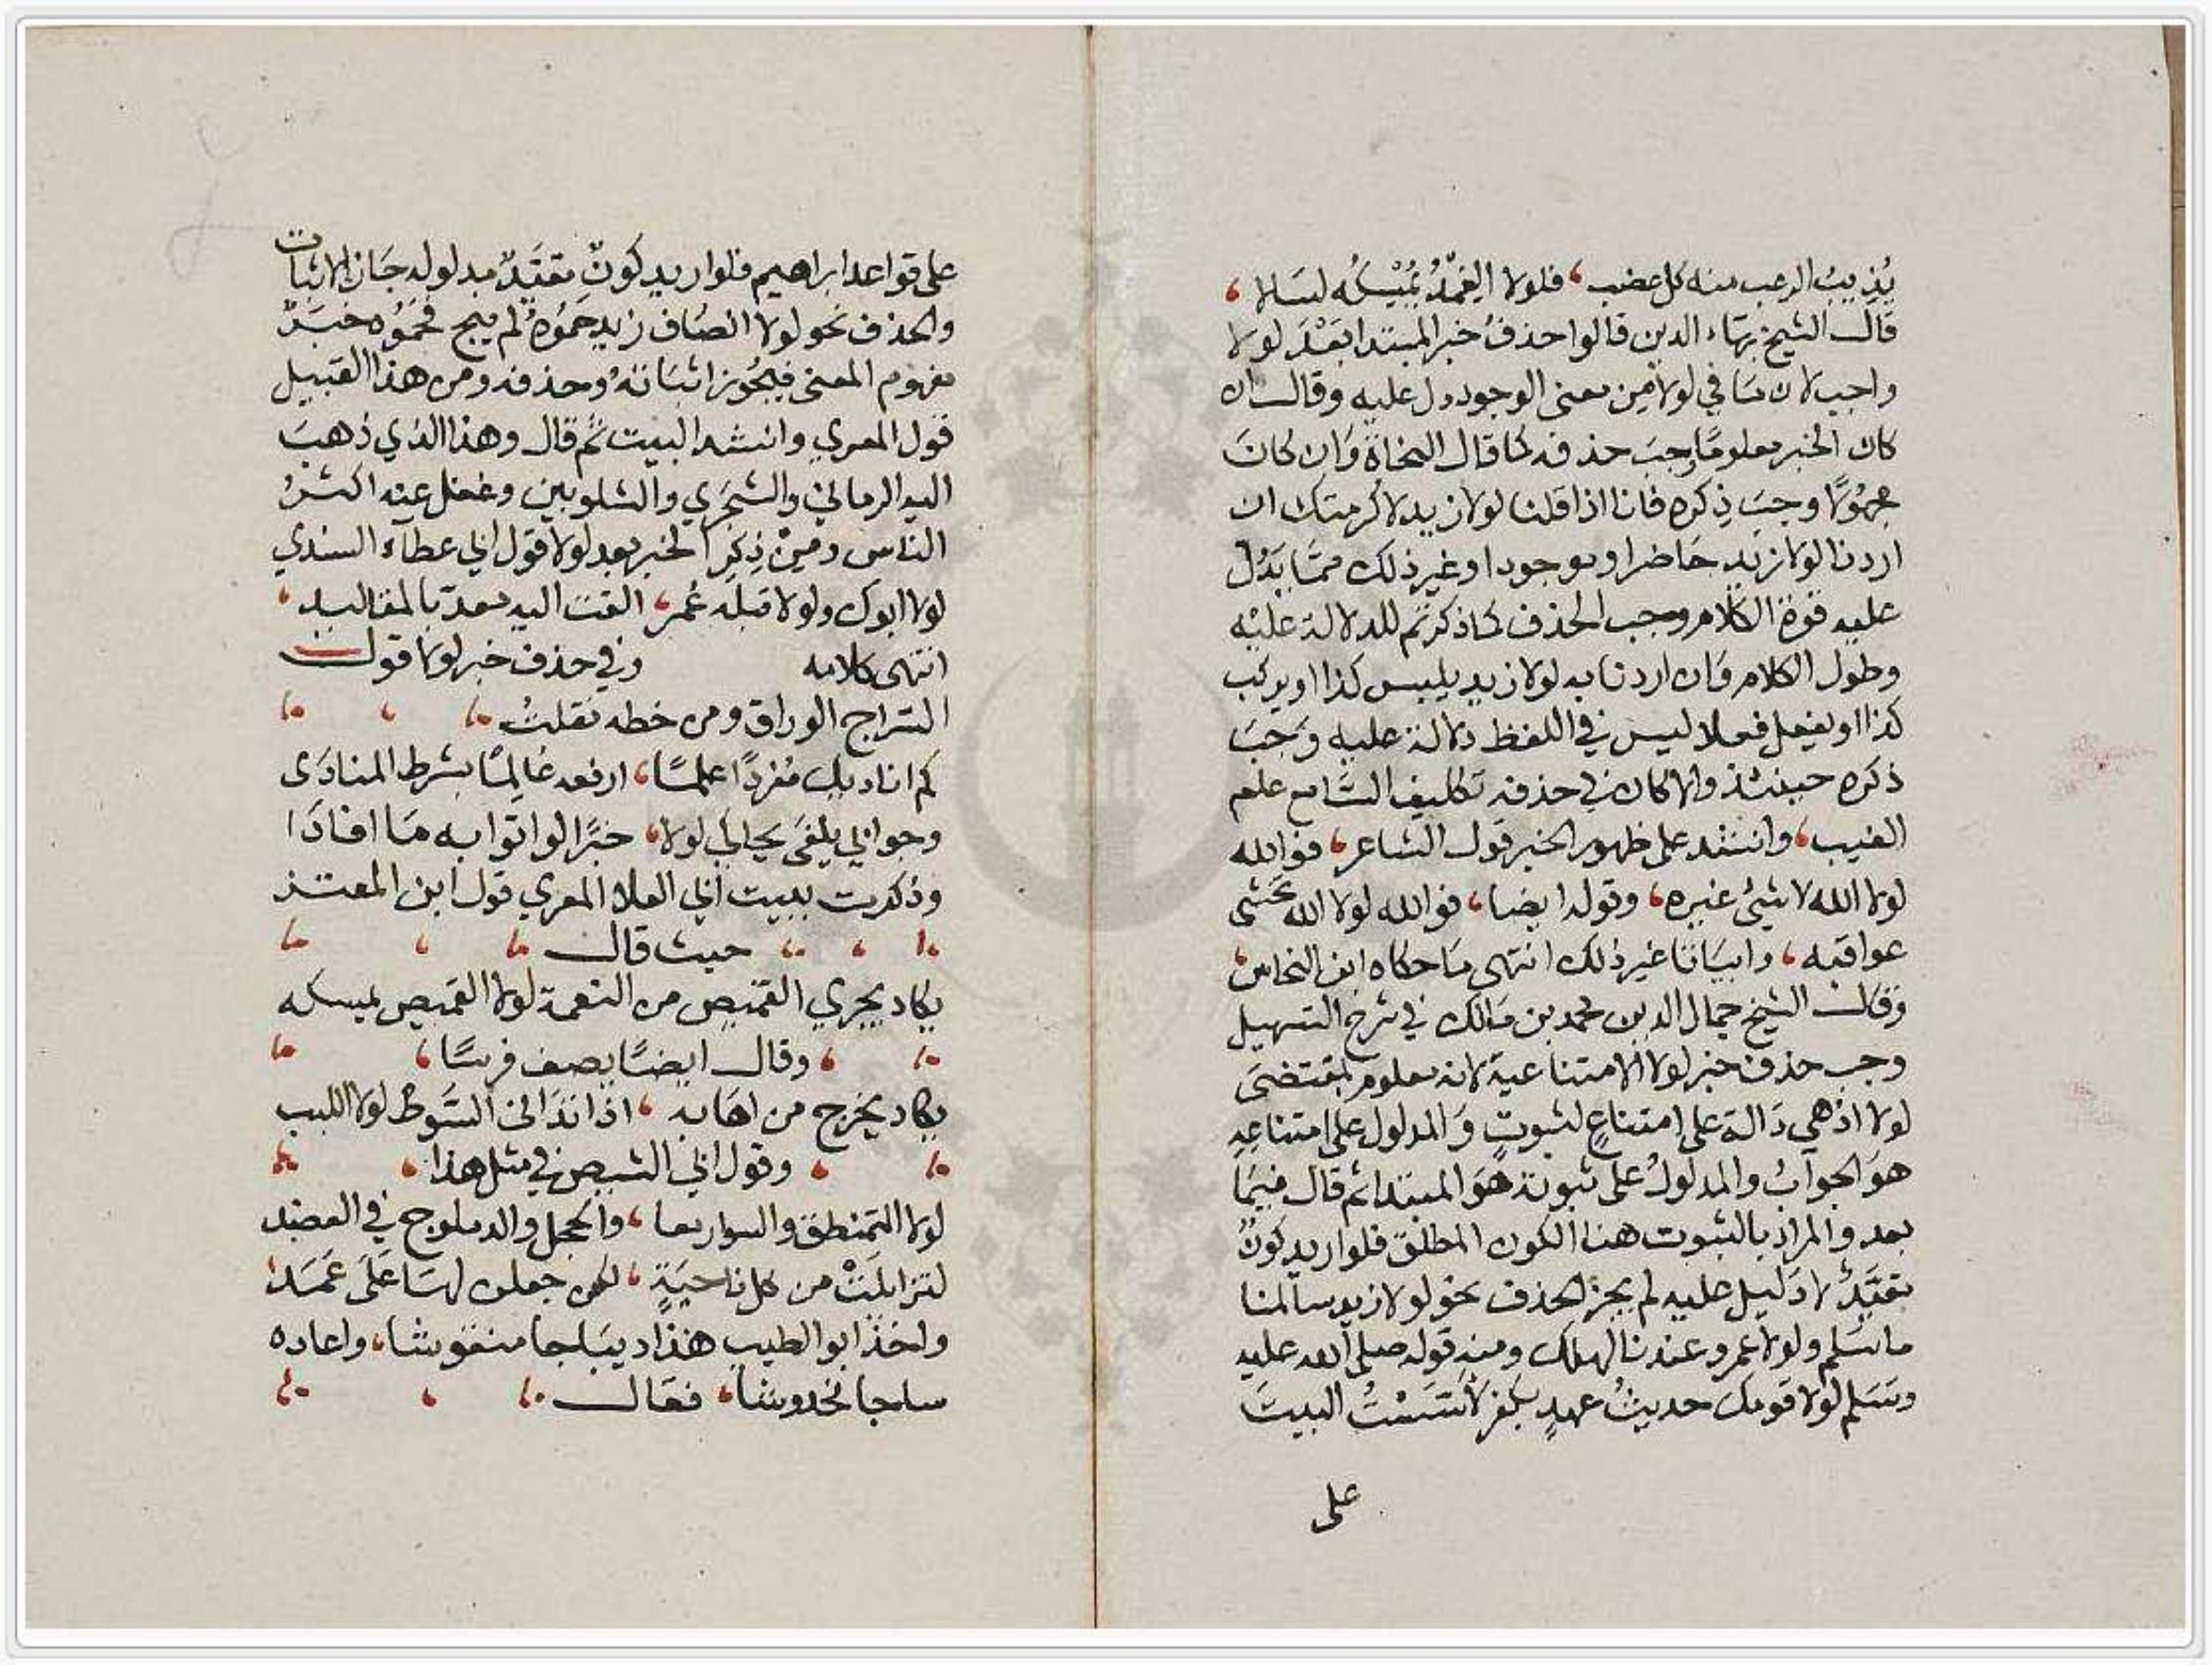 يُذِيبُ الرعب منه كل عضب، فلولا الغِمْدُ يُمْسِكُه لسَالا،
قال الشيخ بهَاء الدين قالوا حذفُ خبر المبتدا بَعْدَ لولا
واجب لان مَا في لولا مِن معنى الوجود دل عليه وقال ان
كان الخبر معلومًا وجبَ حذفه كما قال النحاة وَان كانَ
مجهُولًا وجبَ ذِكره فانا اذا قلنا لولا زيد لاكرمتك ان
اردنا لولا زيد حَاضرا او موجودا او غير ذلك ممَّا يَدُل
عليه قوة الكلام وجب الحذف كما ذكر ثم للدلالة عليْه
وطول الكلام وَان اردنا به لولا زيد يلبس كذا او يركب
كذا او يفعل فعلا ليس في اللفظ دلالة عليه وَجبَ
ذكره حينئذ والا كان في حذفه تكليف السَّامع علم
الغيب، وانشد على ظهور الخبر قول الشاعر، فوالله
لولا الله لا شئ غيره، وقوله ايضا، فوالله لولا الله تخشى
عواقبه، وابيَاتا غير ذلك انتهى مَا حكاه ابن النحاس،
وَقال الشيخ جمال الدين محمد بن مَالك في شرح التسهيل
وجب حذف خبر لولا الامتناعية لانه معلوم بمقتضىَ
لولا اذ هي دَالة على امتناعٍ لثبوتٍ وَالمدلول على امتناعِهِ
هوَ الجوابُ والمدلولُ على ثبوته هوَ المبتدا ثم قال فيمَا
بعد والمراد بالثبوت هنا الكون المطلق فلو اريد كونٌ
مقيَّدٌ لا دَليل عليه لم يجز الحذف نحو لولا زيد سالمنا
ما سَلم ولولا عمرو عندنا لهلك ومنه قوله صلى الله عليه
وسَلم لولا قومك حديثُ عهدٍ بكفر لأسَّسْتُ البيتَ
على
على قواعد ابراهيم فلو اريد كونٌ مقيَّدٌ مدلوله جَاز الاثبات
والحذف نحو لولا انصَاف زيد حَمُوهُ لم ينج فحَمُوه خبَرٌ
مفهوم المعنى فيجُوز اثبَاتهُ وحذفه ومن هذا القبيل
قول المعري وانشد البيت ثم قال وهذا الذي ذهبَ
اليه الرماني والشجَري والشلوبين وغفل عنه اكثرُ
الناس ومِنْ ذِكرِ الخبر بعد لولا قول ابي عطآء السندي
لولا ابوك ولولا قبله عُمر، القت اليه معدّ بالمقاليد،
انتهى كلامه وفي حذف خبر لولا قول
السّراج الوراق ومن خطه نقلتُ
كم اناديك مُفردًا علمًا، ارفعه عَالِمًا بشرط المنادَى
وجوابي يلغَى بحالي لولا، خبرًا لو اتوا به مَا افادَا
وذكرت ببيت ابي العلا المعري قول ابن المعتز
حيث قال
يكاد يجري القميص من النعمة لولا القميص يمسكه
وقال ايضًا يصف فرسًا،
يكاد يخرج من اهَابه، اذا تدَانى السَّوط لولا اللبب
وقول ابي الشيص في مثل هذا
لولا التمنطق والسوار معا، والحجل والدملوج في العضد
لتزايلَتْ من كل ناحيَةٍ، لكن جعلن لهَا عَلَى عَمَد
واخذ ابو الطيب هذا ديبَاجا منقوشا، واعاده
ساجا مخدوشا، فقال